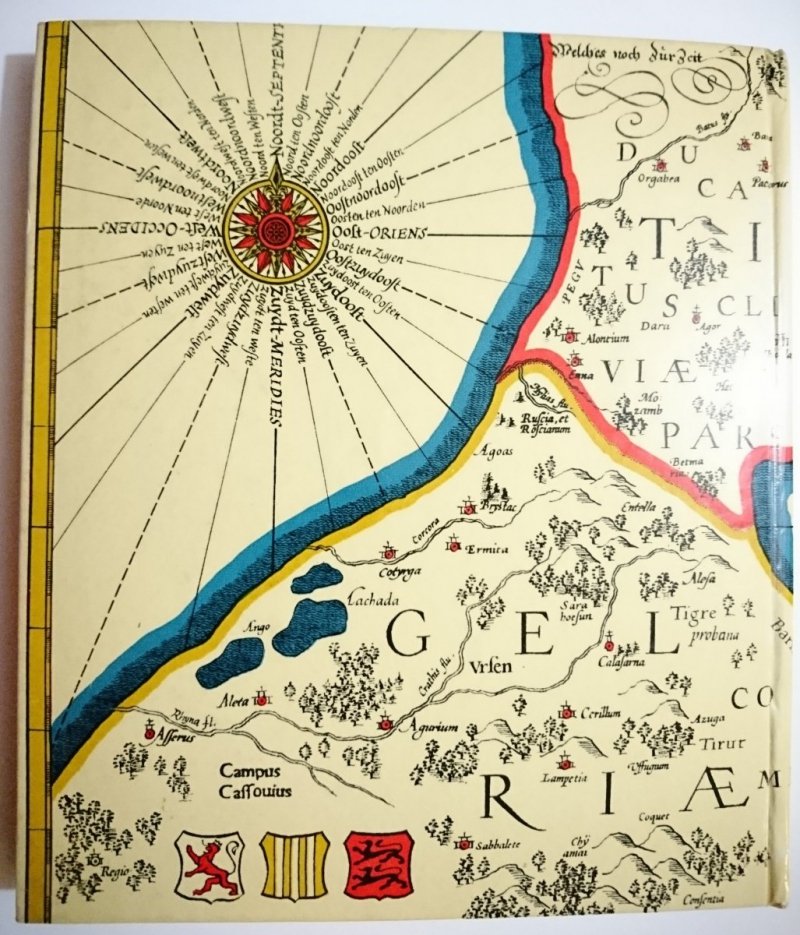 Welches noch Zùr Zeit
Noordt-SEPTENTR
Noord ten Oosten
Noordnoordoost
Noordoost ten Noorden
Noordoost
Noordoost ten Oosten
Oostnoordoost
Oosten ten Noorden
Oost-ORIENS
Oost ten Zuyen
Oostzuydoost
Zuydoost ten Oosten
Zuydoost
Zuydoosten ten Zuyen
Zuydzuydoost
Zuyd ten Oosten
Zuydt-MERIDIES
Zuydzuydwest
Zuydwest ten Zuyen
Zuydwest
Zuydwest ten Westen
Westzuydwest
West ten Zuyen
West-OCCIDENS
West ten Noorde
Westnoordwest
Noordwest
Noordnoordwest
Noord ten Westen
Batus
D U
CA
Orgabea
Pacorus
TI
TUS CLI
PEGV
Daru
Agor
Alontium
Enna
VIÆ
Mo
zamb
PARS
Betma
Ruscia, et
Roscianum
Agoas
Brystac
Entella
Corcora
Ermica
Cotyrga
Alosa
Lachada
Sara
hoesun
Tigre
probana
GEL
Ango
Calasarna
Vrsen
Crathis flu.
CO
Aleta
Cerillum
Azuga
Rhyna fl.
Asserus
Agurium
Tirut
Campus
Cassouius
Lampetia
Vffugum
RIÆ
M
Coquet
Sabbalete
Chÿ
amai
Regio
Consentia